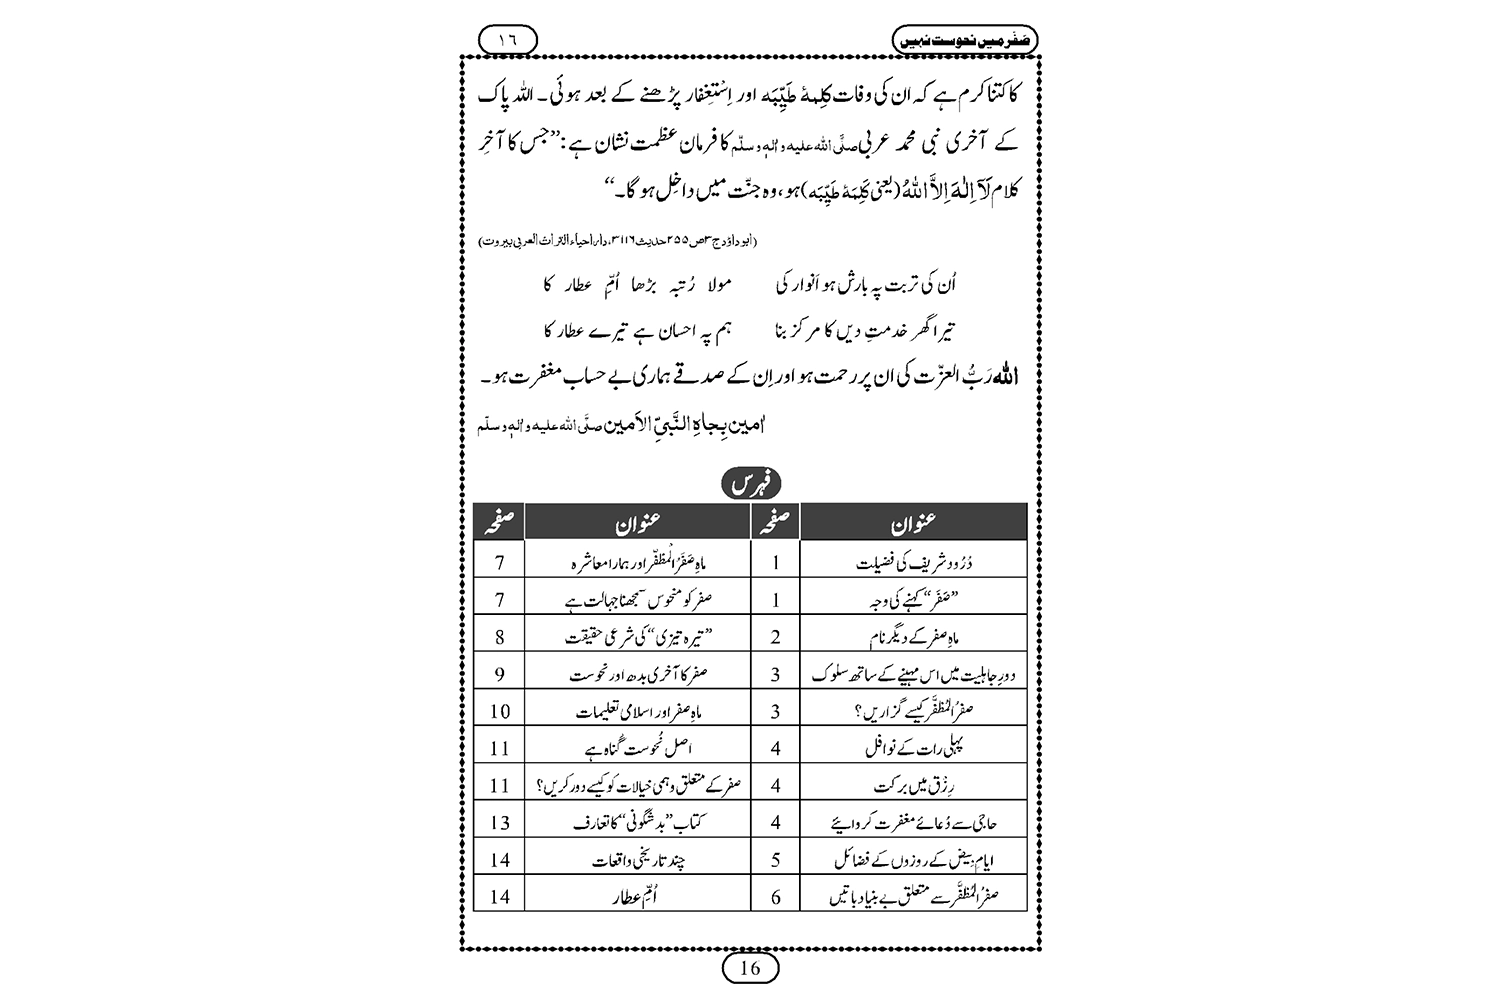 صَفَر میں نحوست نہیں
١٦
کا کتنا کرم ہے کہ ان کی وفات کلِمۂ طَیِّبَہ اور اِسْتِغفار پڑھنے کے بعد ہوئی۔ اللہ پاک
کے آخری نبی محمد عربی صلَّی اللہ علیہ واٰلہٖ وسلّم کا فرمانِ عظمت نشان ہے: ’’جس کا آخرِ
کلام لَآ اِلٰہَ اِلاَّ اللہُ (یعنی کَلِمَۂ طَیِّبَہ) ہو، وہ جنّت میں داخِل ہوگا۔‘‘
(ابوداؤد ج٣ص٢٥٥حدیث٣١١٦، داراحیاء التراث العربی بیروت)
اُن کی تربت پہ بارش ہو اَنوار کی مولا رُتبہ بڑھا اُمِّ عطار کا
تیرا گھر خدمتِ دیں کا مرکز بنا ہم پہ احسان ہے تیرے عطار کا
اللہ رَبُّ العزّت کی ان پر رحمت ہو اور اِن کے صدقے ہماری بے حساب مغفرت ہو۔
اٰمین بِجاہِ النَّبیِّ الاَمین صلَّی اللہ علیہ واٰلہٖ وسلّم
فہرس
عنوان صفحہ عنوان صفحہ
دُرُود شریف کی فضیلت 1 ماہِ صَفَرُ الْمُظفَّر اور ہمارا معاشرہ 7
’’صَفَر‘‘ کہنے کی وجہ 1 صفر کو منحوس سمجھنا جہالت ہے 7
ماہِ صفر کے دیگر نام 2 ’’تیرہ تیزی‘‘ کی شرعی حقیقت 8
دورِ جاہلیت میں اس مہینے کے ساتھ سلوک 3 صفر کا آخری بدھ اور نحوست 9
صفرُ المُظفَّر کیسے گزاریں؟ 3 ماہِ صفر اور اسلامی تعلیمات 10
پہلی رات کے نوافل 4 اصل نُحوست گُناہ ہے 11
رِزْق میں برکت 4 صفر کے متعلق وہمی خیالات کو کیسے دور کریں؟ 11
حاجی سے دُعائے مغفرت کروائیے 4 کتاب ’’بدشگونی‘‘ کا تعارف 13
ایامِ بِیض کے روزوں کے فضائل 5 چند تاریخی واقعات 14
صفرُ المُظفَّر سے متعلق بے بنیاد باتیں 6 اُمِّ عطار 14
16